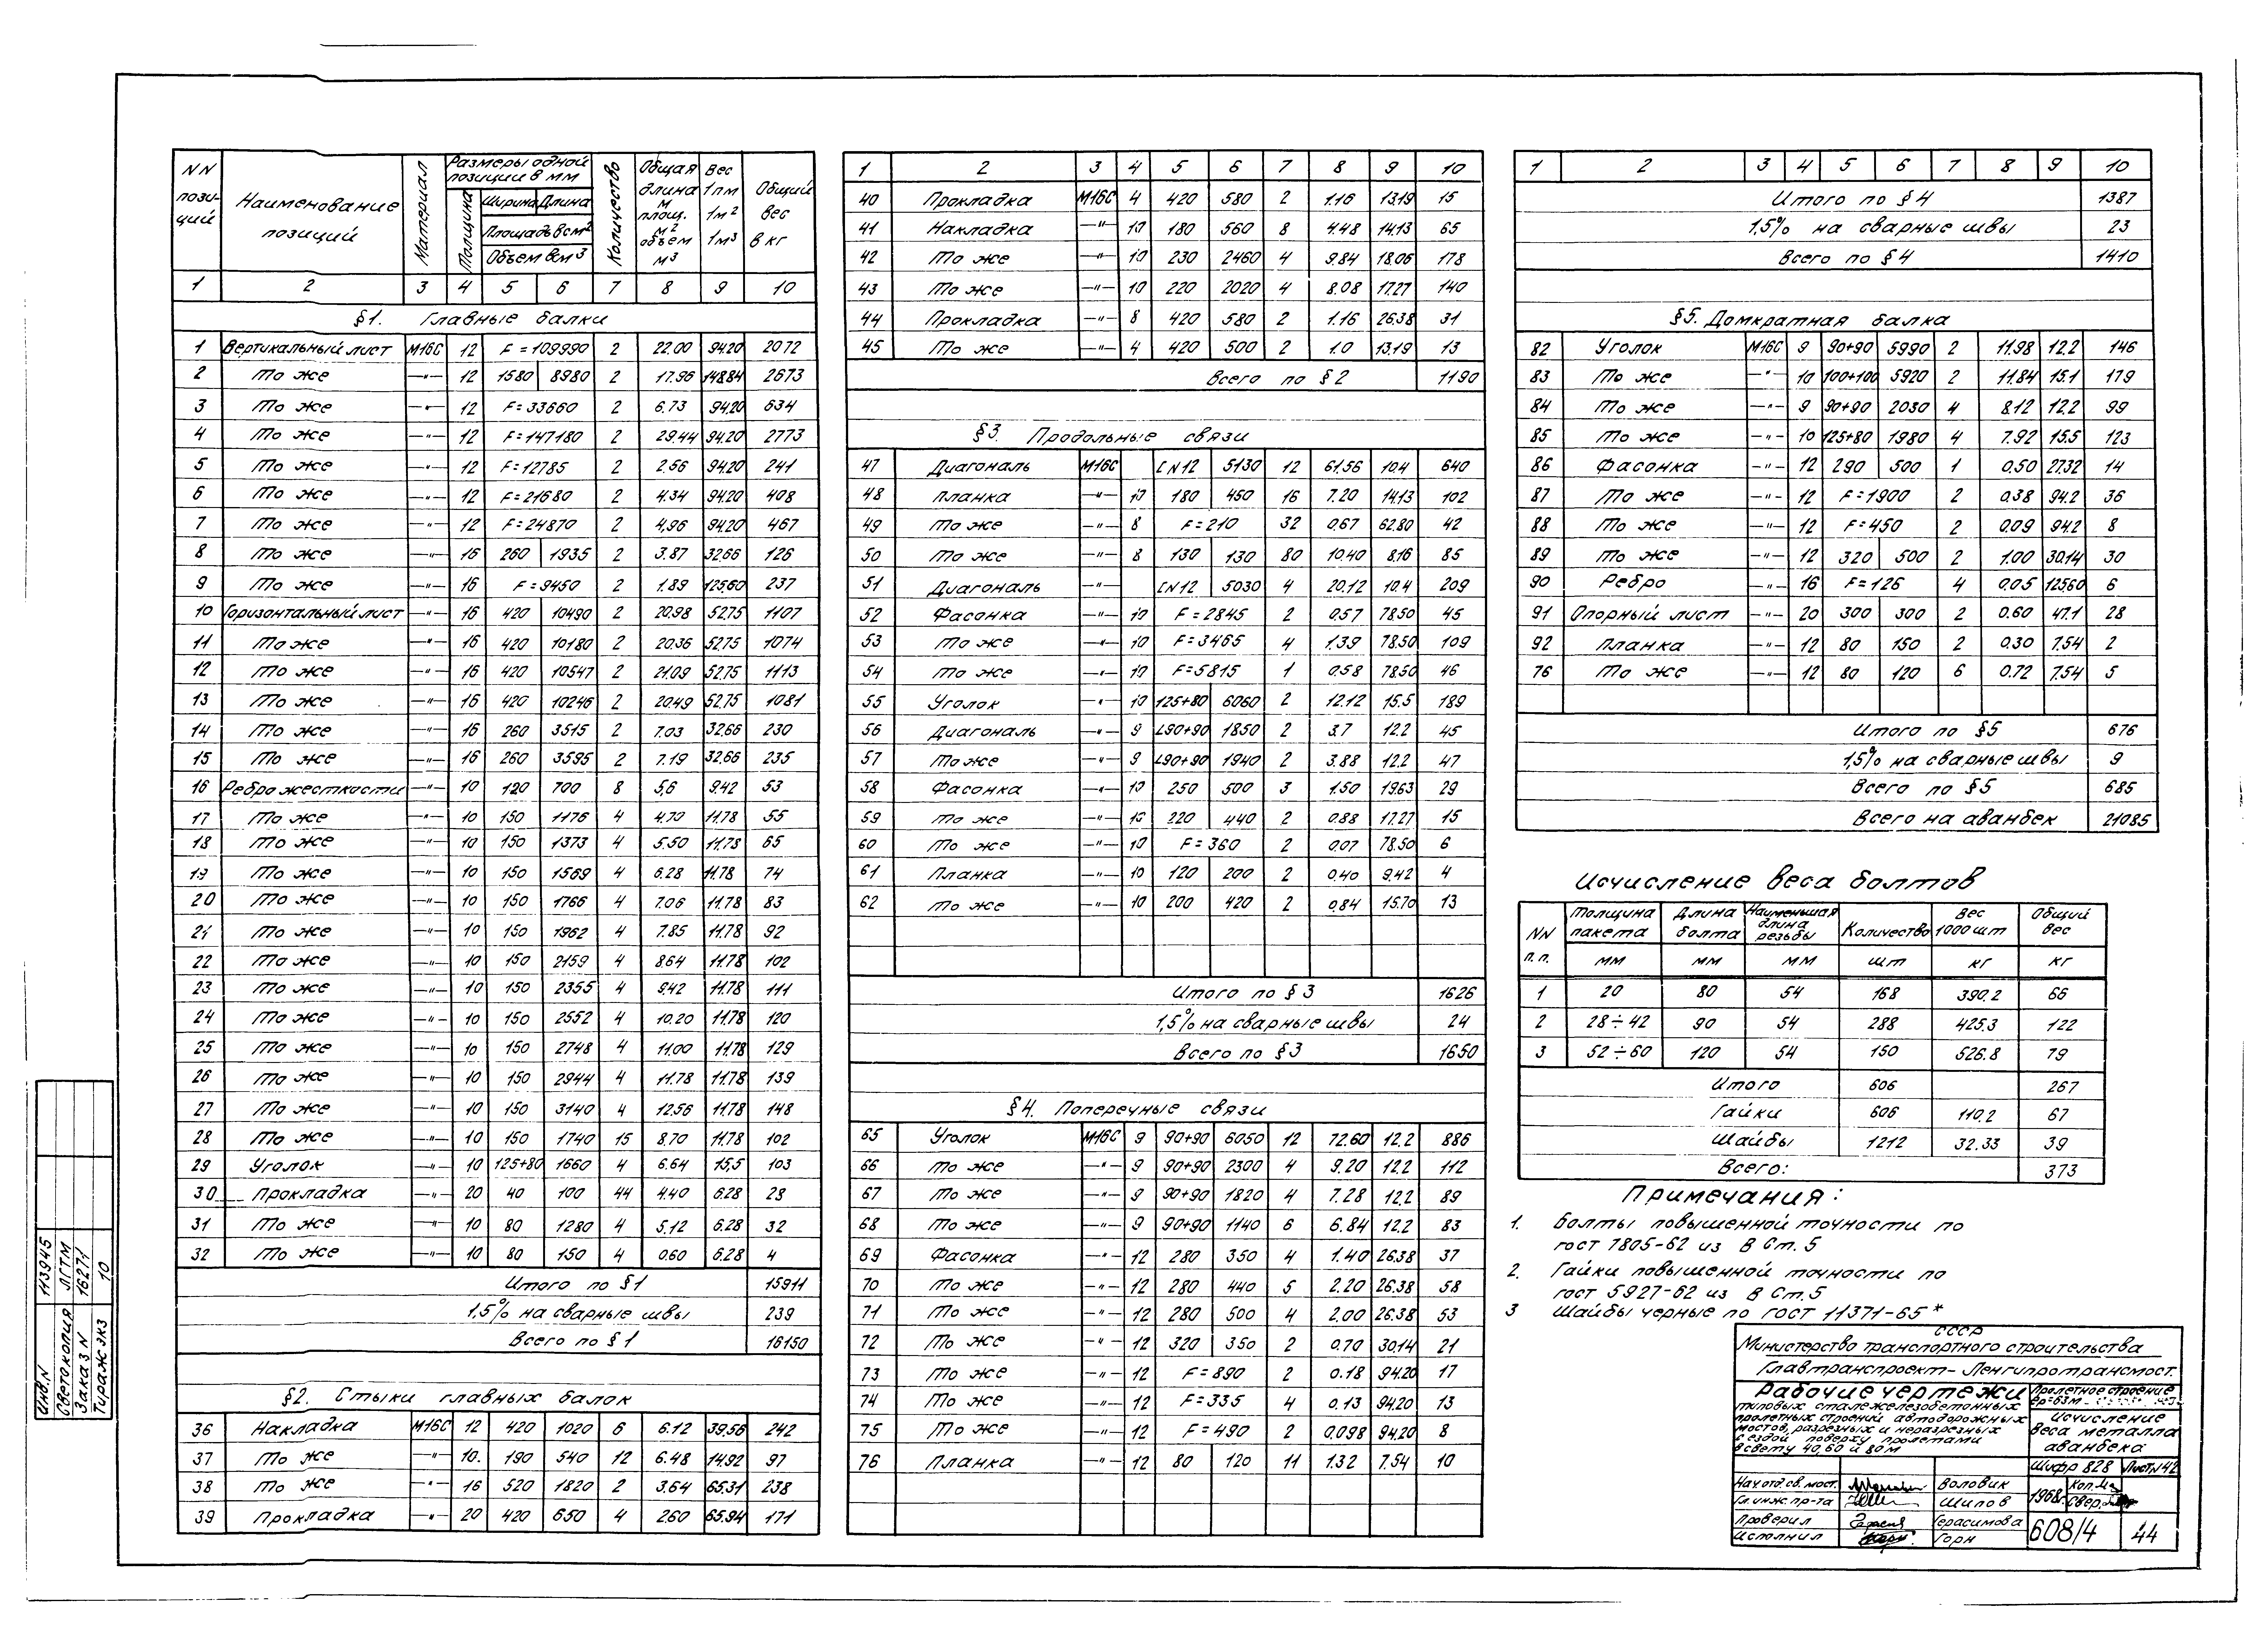 NN позиций | Наименование позиций | Материал | Размеры одной позиции в мм | Количество | Общая длина м площ. м² объем м³ | Вес 1пм 1м² 1м³ | Общий вес в кг
Толщина | Ширина | Длина
Площадь в см²
Объем в см³
1 2 3 4 5 6 7 8 9 10
§1. Главные балки
1 Вертикальный лист М16С 12 F=109990 2 22.00 94.20 2072
2 То же —"— 12 1580 8980 2 17.96 148.84 2673
3 То же —"— 12 F=33660 2 6.73 94.20 634
4 То же —"— 12 F=147180 2 29.44 94.20 2773
5 То же —"— 12 F=12785 2 2.56 94.20 241
6 То же —"— 12 F=21680 2 4.34 94.20 408
7 То же —"— 12 F=24870 2 4.96 94.20 467
8 То же —"— 16 260 1935 2 3.87 32.66 126
9 То же —"— 16 F=9450 2 1.89 125.60 237
10 Горизонтальный лист —"— 16 420 10490 2 20.98 52.75 1107
11 То же —"— 16 420 10180 2 20.36 52.75 1074
12 То же —"— 16 420 10547 2 21.09 52.75 1113
13 То же —"— 16 420 10246 2 20.49 52.75 1081
14 То же —"— 16 260 3515 2 7.03 32.66 230
15 То же —"— 16 260 3595 2 7.19 32.66 235
16 Ребро жесткости —"— 10 120 700 8 5,6 9.42 53
17 То же —"— 10 150 1176 4 4.70 11.78 55
18 То же —"— 10 150 1373 4 5.50 11.78 65
19 То же —"— 10 150 1569 4 6.28 11.78 74
20 То же —"— 10 150 1766 4 7.06 11.78 83
21 То же —"— 10 150 1962 4 7.85 11.78 92
22 То же —"— 10 150 2159 4 8.64 11.78 102
23 То же —"— 10 150 2355 4 9.42 11.78 111
24 То же —"— 10 150 2552 4 10.20 11.78 120
25 То же —"— 10 150 2748 4 11.00 11.78 129
26 То же —"— 10 150 2944 4 11.78 11.78 139
27 То же —"— 10 150 3140 4 12.56 11.78 148
28 То же —"— 10 150 1740 15 8.70 11.78 102
29 Уголок —"— 10 125+80 1660 4 6.64 15,5 103
30 Прокладка —"— 20 40 100 44 4.40 6.28 28
31 То же —"— 10 80 1280 4 5.12 6.28 32
32 То же —"— 10 80 150 4 0.60 6.28 4
Итого по §1 15911
1,5% на сварные швы 239
Всего по §1 16150
§2. Стыки главных балок
36 Накладка М16С 12 420 1020 6 6.12 39.56 242
37 То же —"— 10. 190 540 12 6.48 14.92 97
38 То же —"— 16 520 1820 2 3.64 65.31 238
39 Прокладка —"— 20 420 650 4 2.60 65.94 171
1 2 3 4 5 6 7 8 9 10
40 Прокладка М16С 4 420 580 2 1.16 13.19 15
41 Накладка —"— 10 180 560 8 4.48 14.13 65
42 То же —"— 10 230 2460 4 9.84 18.06 178
43 То же —"— 10 220 2020 4 8.08 17.27 140
44 Прокладка —"— 8 420 580 2 1.16 26.38 31
45 То же —"— 4 420 500 2 1.0 13.19 13
Всего по §2 1190
§3. Продольные связи
47 Диагональ М16С [N12 5130 12 61.56 10.4 640
48 Планка —"— 10 180 450 16 7.20 14.13 102
49 То же —"— 8 F=210 32 0.67 62.80 42
50 То же —"— 8 130 130 80 10.40 8.16 85
51 Диагональ —"— [N12 5030 4 20.12 10.4 209
52 Фасонка —"— 10 F=2845 2 0.57 78.50 45
53 То же —"— 10 F=3465 4 1.39 78.50 109
54 То же —"— 10 F=5815 1 0.58 78.50 46
55 Уголок —"— 10 125+80 6060 2 12.12 15.5 189
56 Диагональ —"— 9 L90+90 1850 2 3.7 12.2 45
57 То же —"— 9 L90+90 1940 2 3.88 12.2 47
58 Фасонка —"— 10 250 500 3 1.50 19.63 29
59 То же —"— 10 220 440 2 0.88 17.27 15
60 То же —"— 10 F=360 2 0.07 78.50 6
61 Планка —"— 10 120 200 2 0.40 9.42 4
62 То же —"— 10 200 420 2 0.84 15.70 13
Итого по §3 1626
1,5% на сварные швы 24
Всего по §3 1650
§4. Поперечные связи
65 Уголок М16С 9 90+90 6050 12 72.60 12.2 886
66 То же —"— 9 90+90 2300 4 9.20 12.2 112
67 То же —"— 9 90+90 1820 4 7.28 12.2 89
68 То же —"— 9 90+90 1140 6 6.84 12.2 83
69 Фасонка —"— 12 280 350 4 1.40 26.38 37
70 То же —"— 12 280 440 5 2.20 26.38 58
71 То же —"— 12 280 500 4 2.00 26.38 53
72 То же —"— 12 320 350 2 0.70 30.14 21
73 То же —"— 12 F=890 2 0.18 94.20 17
74 То же —"— 12 F=335 4 0.13 94.20 13
75 То же —"— 12 F=490 2 0.098 94.20 8
76 Планка —"— 12 80 120 11 1.32 7.54 10
1 2 3 4 5 6 7 8 9 10
Итого по §4 1387
1,5% на сварные швы 23
Всего по §4 1410
§5. Домкратная балка
82 Уголок М16С 9 90+90 5990 2 11.98 12.2 146
83 То же —"— 10 100+100 5920 2 11.84 15.1 179
84 То же —"— 9 90+90 2030 4 8.12 12.2 99
85 То же —"— 10 125+80 1980 4 7.92 15.5 123
86 Фасонка —"— 12 290 500 1 0.50 27.32 14
87 То же —"— 12 F=1900 2 0.38 94.2 36
88 То же —"— 12 F=450 2 0.09 94.2 8
89 То же —"— 12 320 500 2 1.00 30.14 30
90 Ребро —"— 16 F=126 4 0.05 125.60 6
91 Опорный лист —"— 20 300 300 2 0.60 47.1 28
92 Планка —"— 12 80 150 2 0.30 7.54 2
76 То же —"— 12 80 120 6 0.72 7.54 5
Итого по §5 676
1,5% на сварные швы 9
Всего по §5 685
Всего на аванбек 21085
Исчисление веса болтов
NN п.п. | Толщина пакета мм | Длина болта мм | Наименьшая длина резьбы мм | Количество шт | Вес 1000 шт кг | Общий вес кг
1 20 80 54 168 390.2 66
2 28÷42 90 54 288 425.3 122
3 52÷60 120 54 150 526.8 79
Итого 606 267
Гайки 606 110.2 67
Шайбы 1212 32.33 39
Всего: 373
Примечания:
1. Болты повышенной точности по
гост 7805-62 из В Ст.5
2. Гайки повышенной точности по
гост 5927-62 из В Ст.5
3 Шайбы черные по гост 11371-65*
СССР
Министерство транспортного строительства
Главтранспроект-Ленгипротрансмост.
Рабочие чертежи
типовых сталежелезобетонных
пролетных строений автодорожных
мостов, разрезных и неразрезных
с ездой поверху пролетами
в свету 40,60 и 80м
Пролетное строение
ℓр=63м
Исчисление
веса металла
аванбека
Шифр 828 Лист N42
Нач.отд.св.мост. Воловик
Гл.инж.пр-та Шипов
Проверил Герасимова
Исполнил Горн
1968г. Коп.
Свер.
608/4 44
Инв.N 113945
Светокопия ЛГТМ
Заказ N 16271
Тираж экз 10